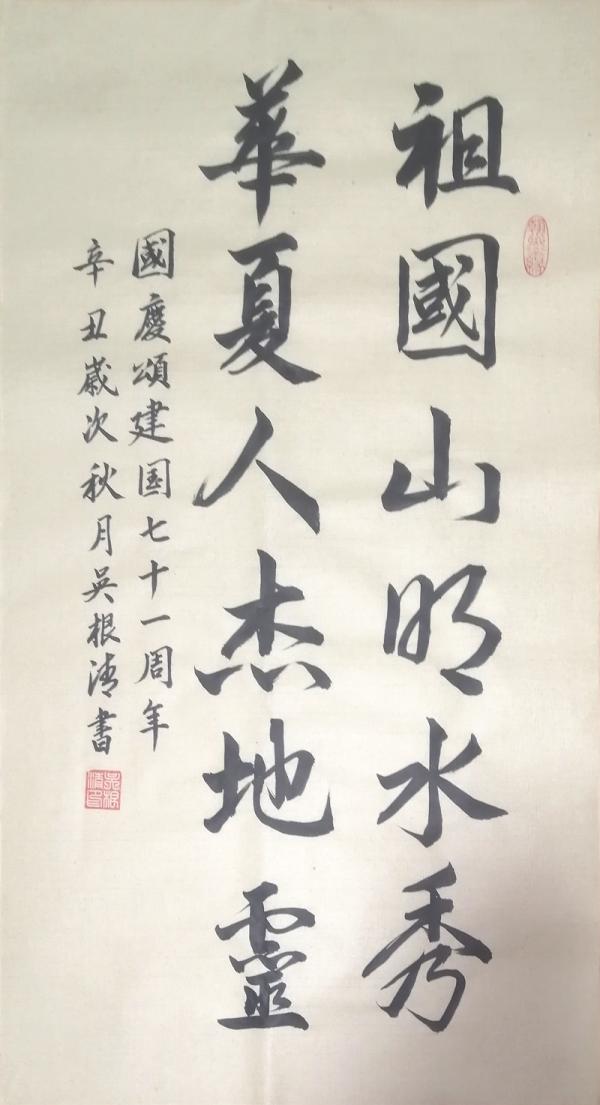 祖國山明水秀
華夏人杰地靈
國慶頌建国七十一周年
辛丑嵗次秋月吳根清書
吴根清印